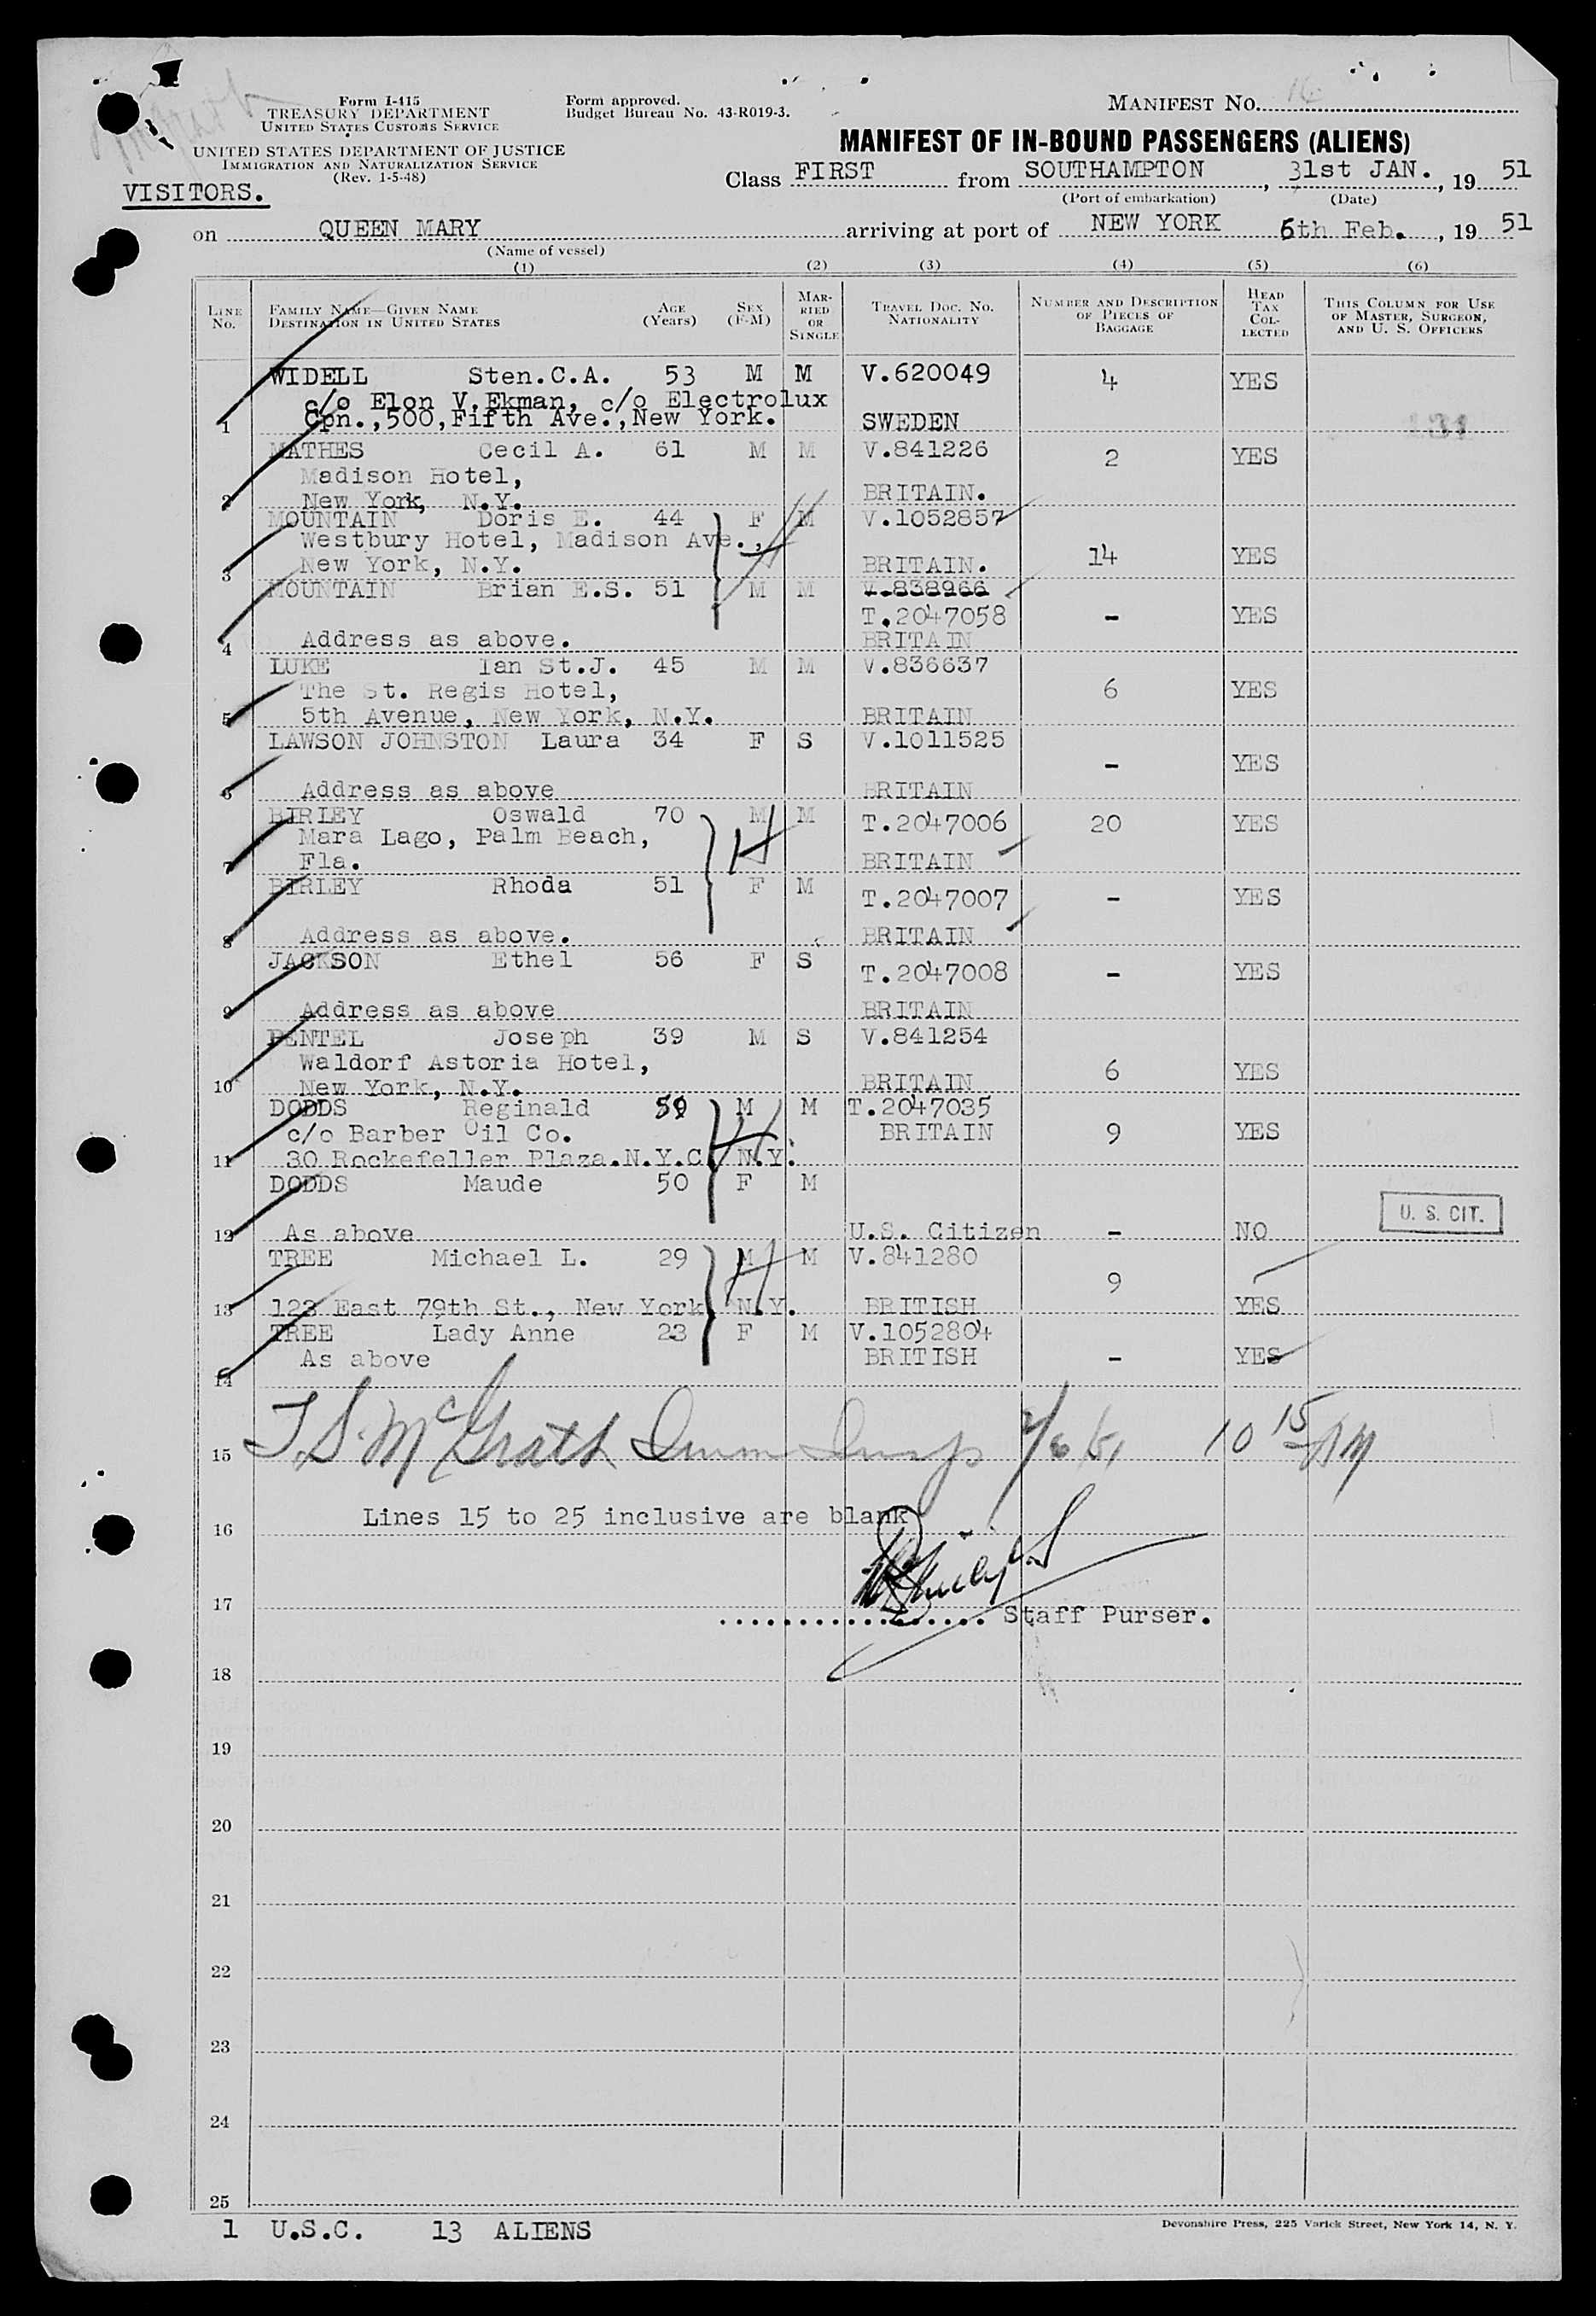 Form I-415
TREASURY DEPARTMENT
UNITED STATES CUSTOMS SERVICE
UNITED STATES DEPARTMENT OF JUSTICE
IMMIGRATION AND NATURALIZATION SERVICE
(Rev. 1-5-48)
Form approved.
Budget Bureau No. 43-R019-3.
MANIFEST NO. 16
MANIFEST OF IN-BOUND PASSENGERS (ALIENS)
VISITORS.
Class FIRST from SOUTHAMPTON, 31st JAN., 19 51
(Port of embarkation) (Date)
on QUEEN MARY arriving at port of NEW YORK 6th Feb., 19 51
(Name of vessel)
(1) (2) (3) (4) (5) (6)
LINE No. FAMILY NAME—GIVEN NAME DESTINATION IN UNITED STATES AGE (Years) SEX (F-M) MARRIED OR SINGLE TRAVEL DOC. NO. NATIONALITY NUMBER AND DESCRIPTION OF PIECES OF BAGGAGE HEAD TAX COLLECTED THIS COLUMN FOR USE OF MASTER, SURGEON, AND U. S. OFFICERS
WIDELL Sten.C.A. 53 M M V.620049 4 YES
c/o Elon V.Ekman, c/o Electrolux
1 Cpn.,500,Fifth Ave.,New York. SWEDEN 131
MATHES Cecil A. 61 M M V.841226 2 YES
Madison Hotel,
2 New York, N.Y. BRITAIN.
MOUNTAIN Doris E. 44 F M V.1052857
Westbury Hotel, Madison Ave., 14 YES
3 New York, N.Y. BRITAIN.
MOUNTAIN Brian E.S. 51 M M V.838966
T.2047058 - YES
4 Address as above. BRITAIN
LUKE Ian St.J. 45 M M V.836637
The St. Regis Hotel, 6 YES
5 5th Avenue, New York, N.Y. BRITAIN
LAWSON JOHNSTON Laura 34 F S V.1011525
- YES
6 Address as above BRITAIN
BIRLEY Oswald 70 M M T.2047006 20 YES
Mara Lago, Palm Beach,
7 Fla. BRITAIN
BIRLEY Rhoda 51 F M T.2047007 - YES
8 Address as above. BRITAIN
JACKSON Ethel 56 F S T.2047008 - YES
9 Address as above BRITAIN
PENTEL Joseph 39 M S V.841254
Waldorf Astoria Hotel, 6 YES
10 New York, N.Y. BRITAIN
DODDS Reginald 59 M M T.2047035
c/o Barber Oil Co. BRITAIN 9 YES
11 30 Rockefeller Plaza.N.Y.C. N.Y.
DODDS Maude 50 F M
12 As above U.S. Citizen - NO U. S. CIT.
TREE Michael L. 29 M M V.841280
9
13 123 East 79th St., New York, N.Y. BRITISH YES
TREE Lady Anne 23 F M V.1052804
As above BRITISH - YES
14
15 T.S. McGrath Imm Insp 2/6/51 10 15 AM
Lines 15 to 25 inclusive are blank
16
17
Staff Purser.
18
19
20
21
22
23
24
25
1 U.S.C. 13 ALIENS
Devonshire Press, 225 Varick Street, New York 14, N. Y.